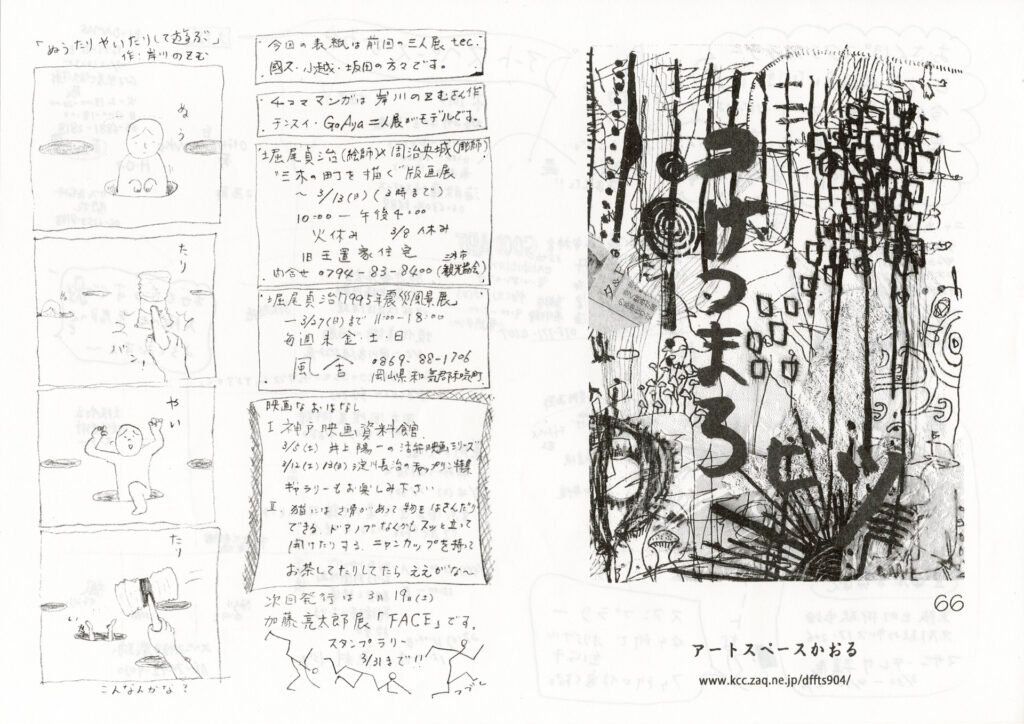 「ぬうたりやいたりして遊ぶ」
作：岸川のぞむ
ぬう
たり
バン！
やい
たり
こんなんかな？
今回の表紙は前回の三人展 tec.
國久・小越・坂田の方々です。
4コママンガは岸川のぞむさん作
テンスイ・GoAya二人展がモデルです。
堀尾貞治(絵師)×周治央城(彫師)
"三木の町を描く"版画展
～3/13(日)(3時まで)
10:00 ― 午後4:00
火休み 3/8 休み
旧玉置家住宅
問合せ 0794-83-8400(三木市観光協会)
堀尾貞治1995年震災風景展
―3/27(日)まで 11:00-18:00
毎週末 金・土・日
風舎 0869-88-1706
岡山県和気郡和気町
映画なおはなし
I 神戸映画資料館
3/5(土) 井上陽一の活弁映画シリーズ
3/12(土)13(日) 淀川長治のチャップリン特集
ギャラリーもお楽しみ下さい
II 猫には さ骨があって物をはさんだり
できる、ドアノブなんかも スッと立って
開けたりする、ニャンカップを持って
お茶してたりしてたら ええがな～
次回発行は 3月19日(土)
加藤亮太郎展「FACE」です。
スタンプラリー
3/31まで!!
コケコまろ
ビッ
66
アートスペースかおる
www.kcc.zaq.ne.jp/dffts904/